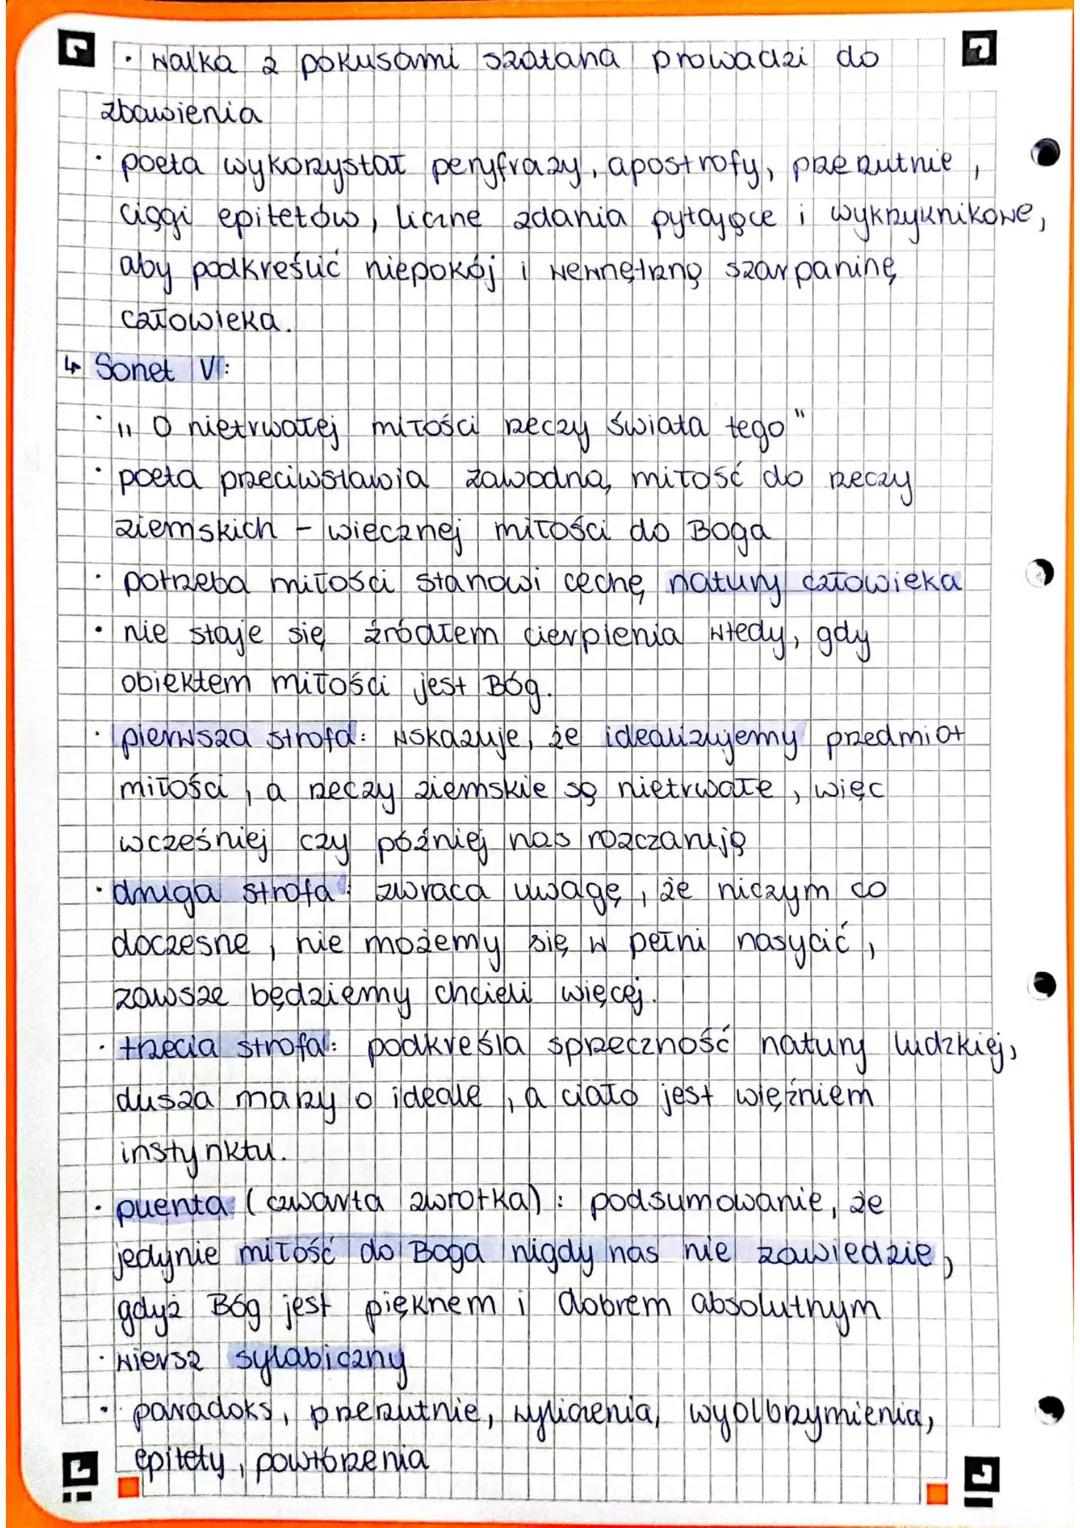 · walka z pokusami szatana prowadzi do
zbawienia
· poeta wykorzystał peryfrazy, apostrofy, przerzutnie,
ciągi epitetów, liczne zdania pytające i wykrzyknikowe,
aby podkreślić niepokój i wewnętrzną szarpaninę
człowieka.
↳ Sonet V:
· „O nietrwałej miłości rzeczy świata tego"
· poeta przeciwstawia zawodną miłość do rzeczy
ziemskich - wiecznej miłości do Boga
· potrzeba miłości stanowi cechę natury człowieka
· nie staje się źródłem cierpienia wtedy, gdy
obiektem miłości jest Bóg.
· pierwsza strofa: wskazuje, że idealizujemy przedmiot
miłości, a rzeczy ziemskie są nietrwałe, więc
wcześniej czy później nas rozczarują
· druga strofa: zwraca uwagę, że niczym co
doczesne, nie możemy się w pełni nasycić,
zawsze będziemy chcieli więcej.
· trzecia strofa: podkreśla sprzeczność natury ludzkiej,
dusza marzy o ideale, a ciało jest więźniem
instynktu.
· puenta (czwarta zwrotka): podsumowanie, że
jedynie miłość do Boga nigdy nas nie zawiedzie,
gdyż Bóg jest pięknem i dobrem absolutnym
· wiersz sylabiczny
· paradoks, przerzutnie, wyliczenia, wyolbrzymienia,
epitety, powtórzenia